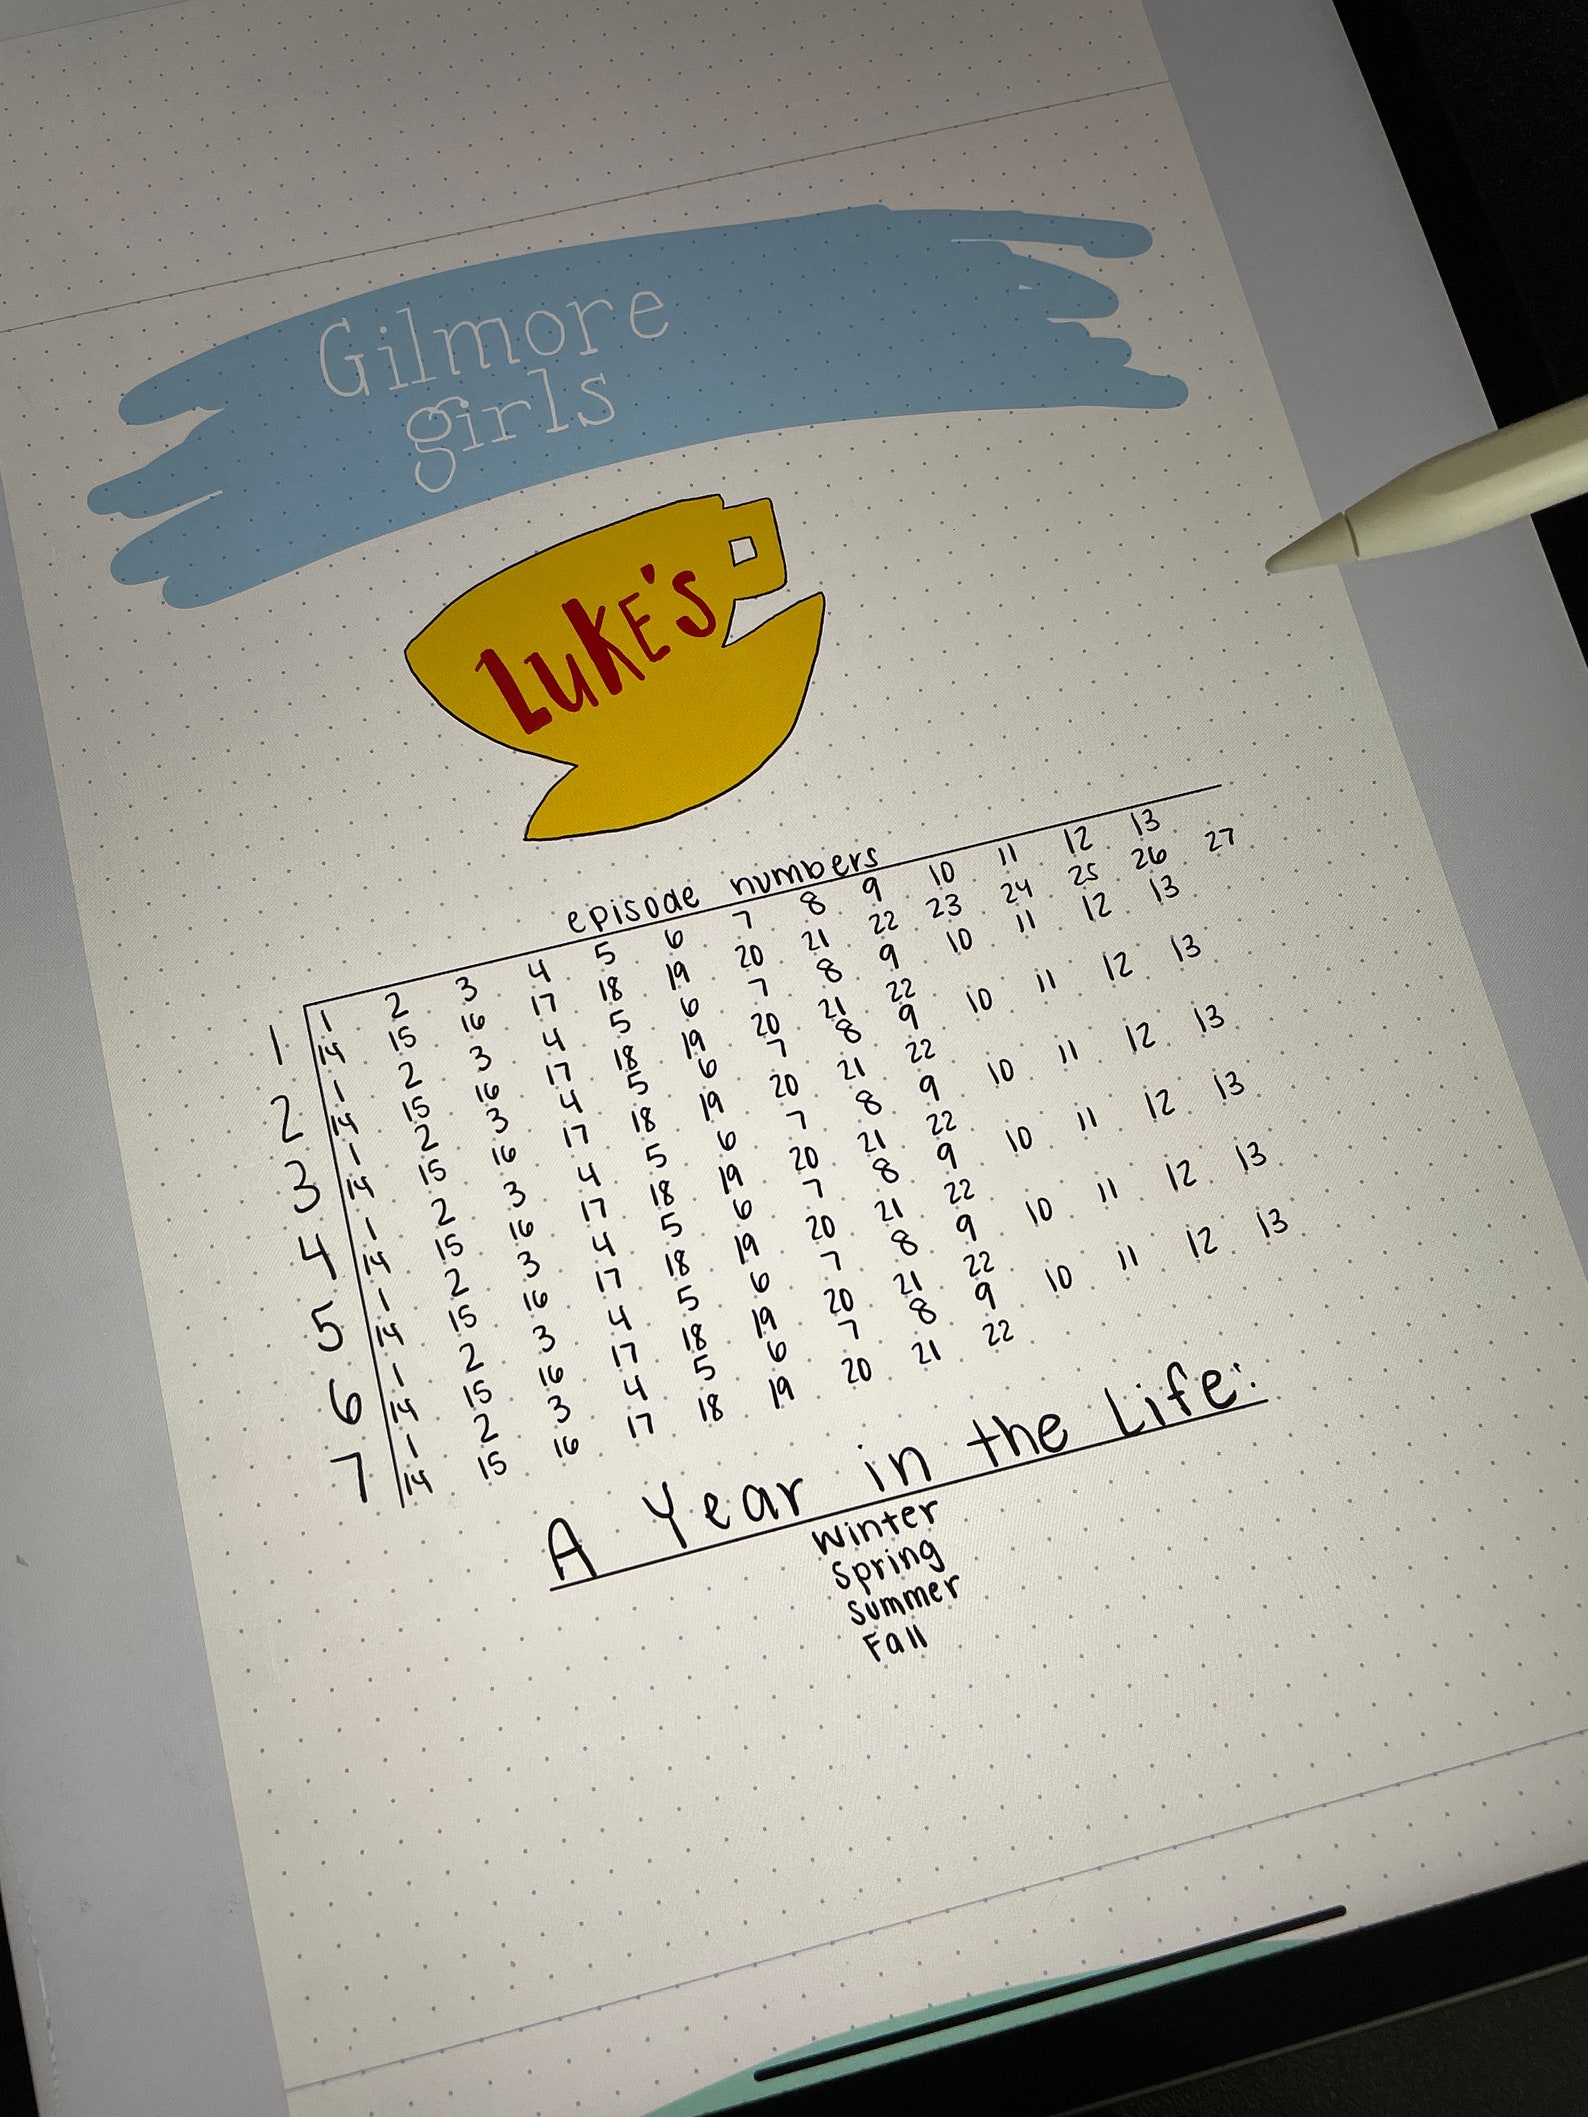 Gilmore
girls
LUKE'S
episode numbers
1 1 2 3 4 5 6 7 8 9 10 11 12 13
14 15 16 17 18 19 20 21 22 23 24 25 26 27
2 1 2 3 4 5 6 7 8 9 10 11 12 13
14 15 16 17 18 19 20 21 22
3 1 2 3 4 5 6 7 8 9 10 11 12 13
14 15 16 17 18 19 20 21 22
4 1 2 3 4 5 6 7 8 9 10 11 12 13
14 15 16 17 18 19 20 21 22
5 1 2 3 4 5 6 7 8 9 10 11 12 13
14 15 16 17 18 19 20 21 22
6 1 2 3 4 5 6 7 8 9 10 11 12 13
14 15 16 17 18 19 20 21 22
7 1 2 3 4 5 6 7 8 9 10 11 12 13
14 15 16 17 18 19 20 21 22
A Year in the Life:
Winter
Spring
Summer
Fall